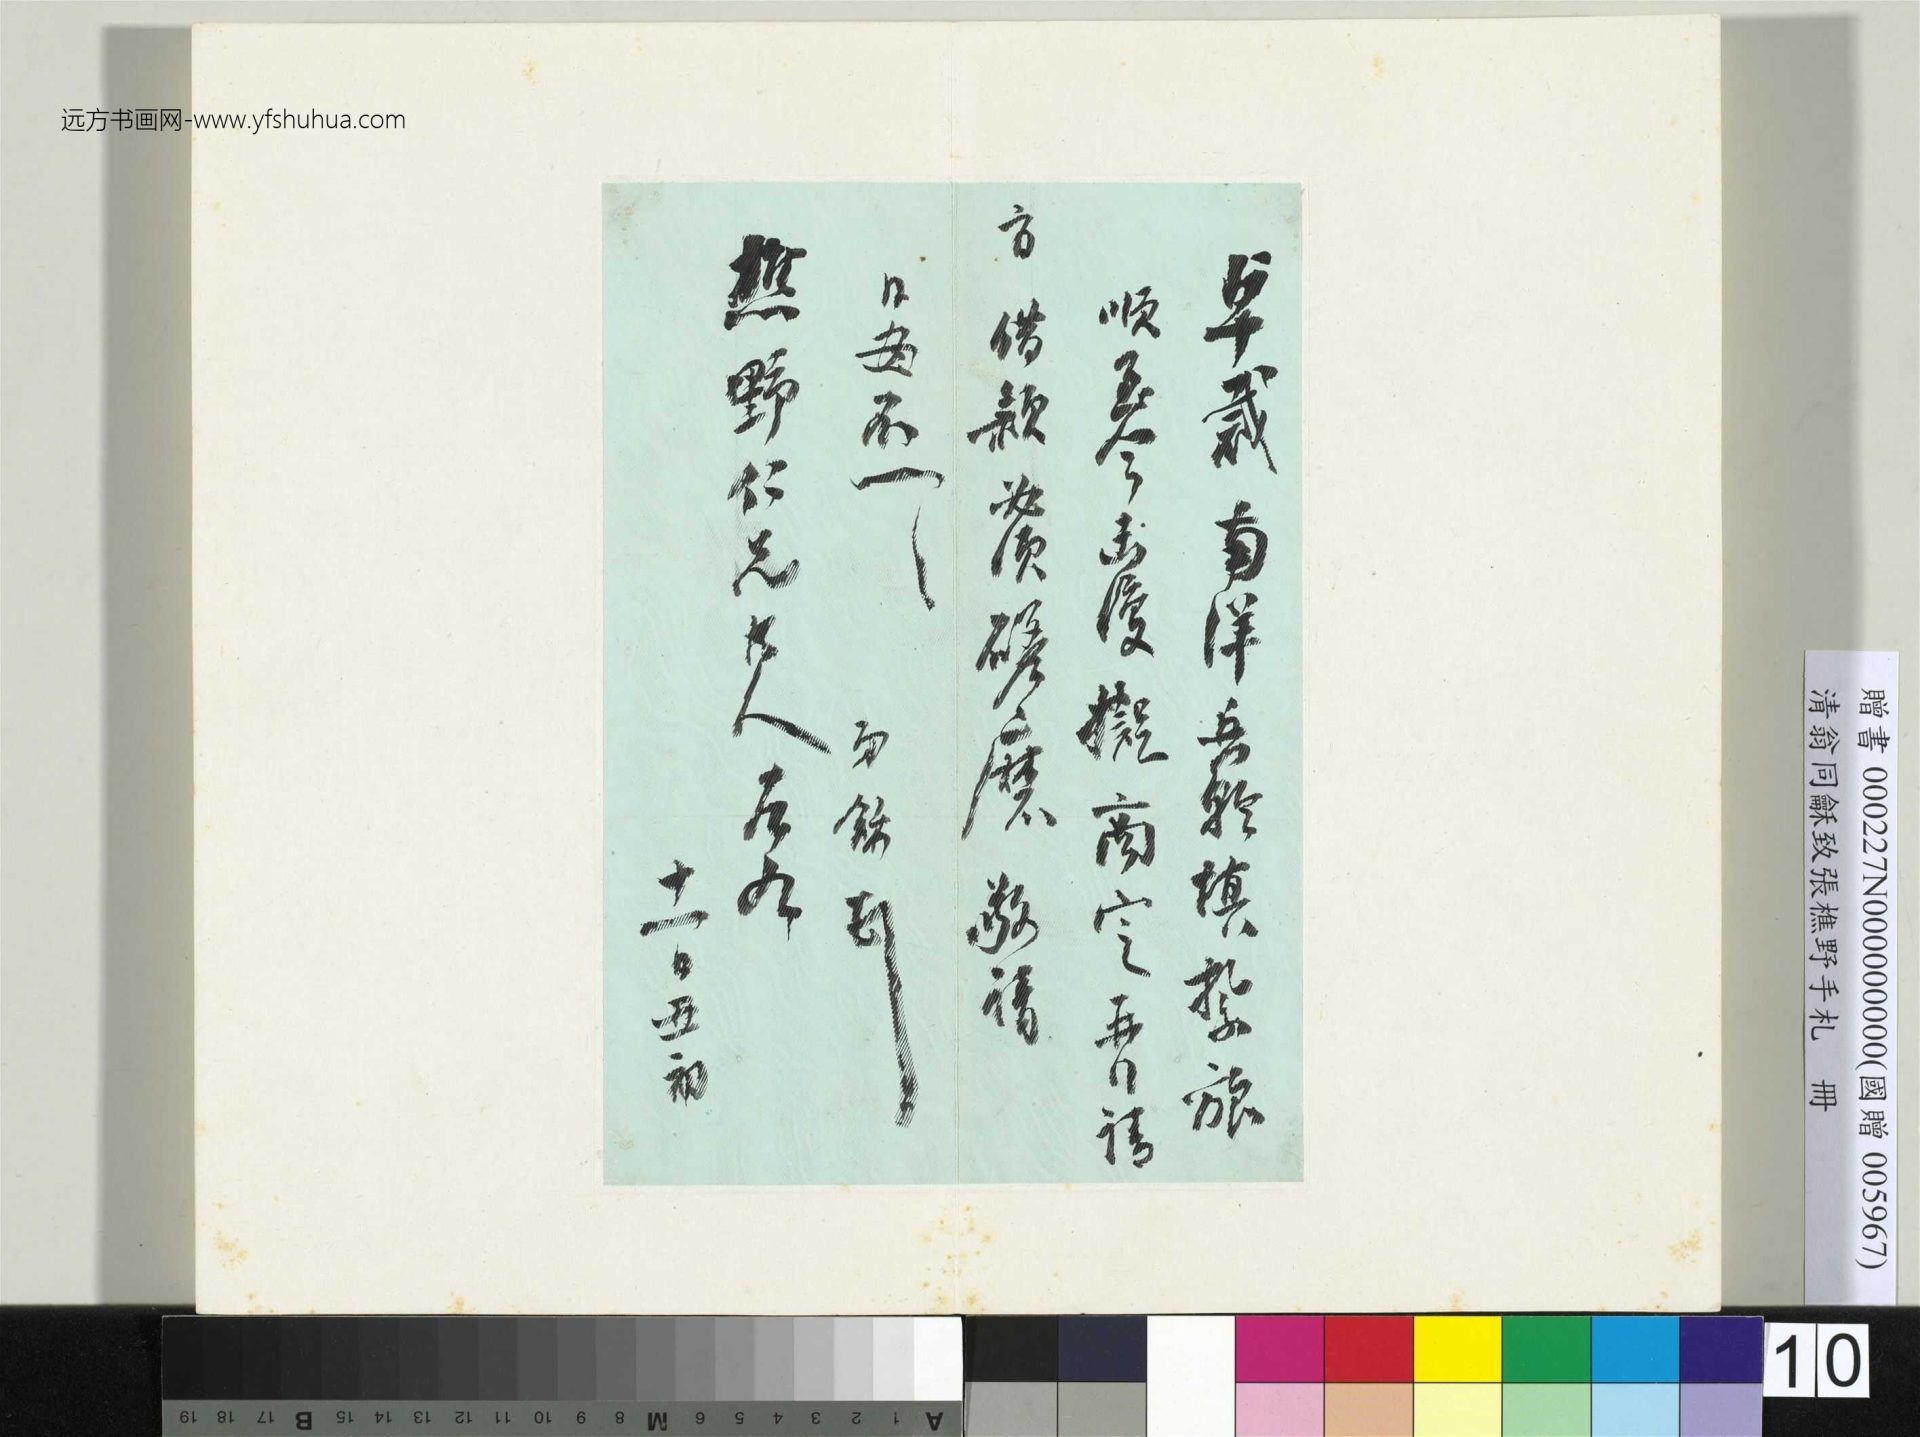 远方书画网-www.yfshuhua.com
卓裁 南洋兵輪填紮旅
順 今復擬商定再請
方借款必須磋磨敬請
日安不一一 同龢
樵野仁兄大人左右
十一日丑初
贈書 000227N000000000(國贈 005967)
清翁同龢致張樵野手札 冊
A 1 2 3 4 5 6 M 8 9 10 11 12 13 14 15 B 17 18 19
10